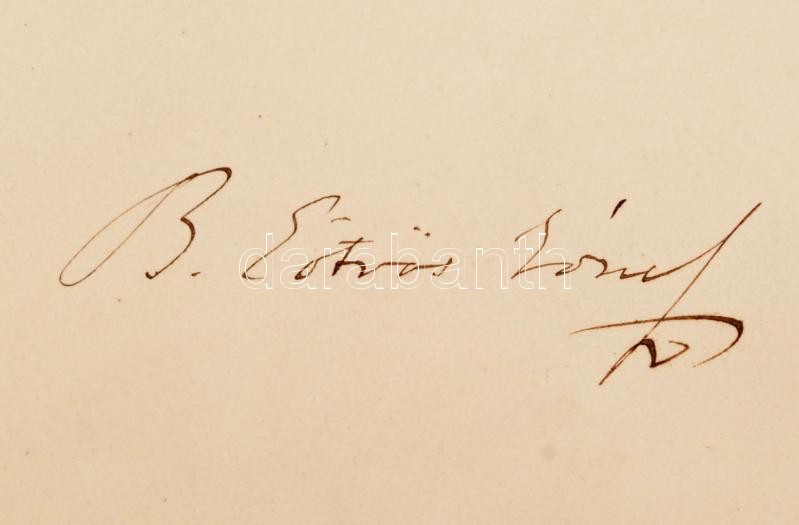 B. Eötvös József
darabanth